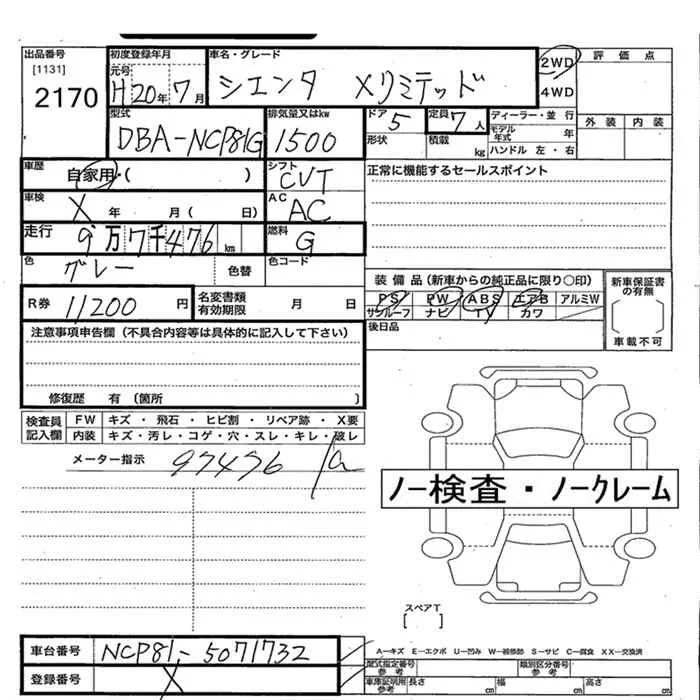 出品番号 初度登録年月 車名・グレード 2WD 評価点
[1131] 元号 シエンタ Xリミテッド 4WD
2170 H 20年 7月
型式 排気量又はkw ドア 5 定員 7人 ディーラー・並行 外装 内装
DBA-NCP81G 1500 形状 積載 kg モデル年式 年
ハンドル 左・右
車歴 自家用・( ) シフト CVT 正常に機能するセールスポイント
車検 X 年 月 ( 日) AC AC
走行 9万7千476 km 燃料 G
色 グレー 色替 色コード
装備品(新車からの純正品に限り○印) 新車保証書の有無
R券 11200 円 名変書類有効期限 月 日 PS PW ABS エアB アルミW
サンルーフ ナビ TV カワ
後日品 車載不可
注意事項申告欄(不具合内容等は具体的に記入して下さい)
修復歴 有 〔箇所 〕
検査員記入欄 FW キズ・飛石・ヒビ割・リペア跡・X要
内装 キズ・汚レ・コゲ・穴・スレ・キレ・破レ
メーター指示 97476
ノー検査・ノークレーム
スペアT
[ ]
車台番号 NCP81-5071732
A-キズ E-エクボ U-凹み W-補修跡 S-サビ C-腐食 XX-交換済
登録番号 X 型式指定番号 参考 類別区分番号 参考
車庫証明用 参考 長さ cm 幅 cm 高さ cm